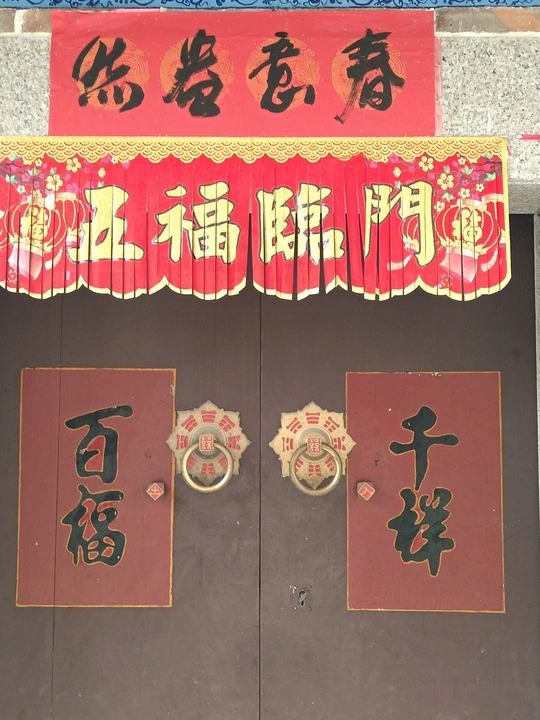 春意盎然
五福臨門
千祥
百福